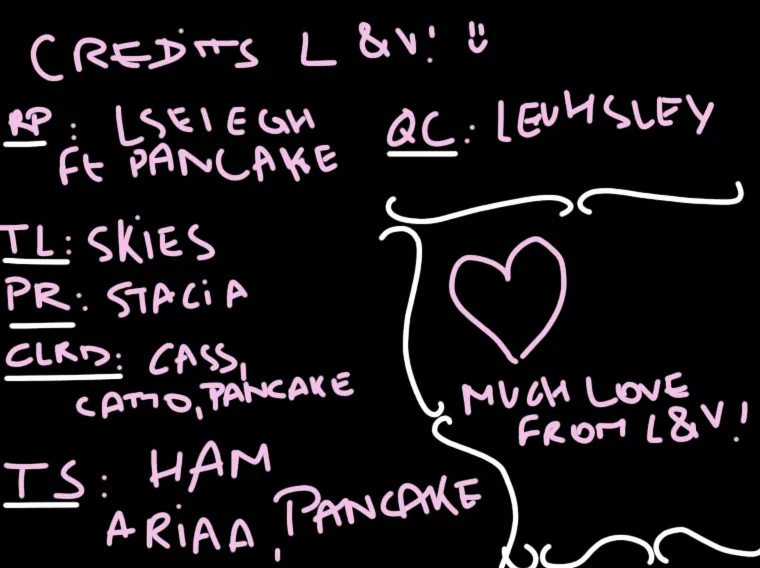 CREDITS L &V! :)
RP: LSEIEGH
Ft PANCAKE
QC: LEUHSLEY
TL: SKIES
PR: STACiA
CLRD: CASS,
CATTO, PANCAKE
TS: HAM
ARIAA, PANCAKE
MUCH LOVE
FROM L&V!